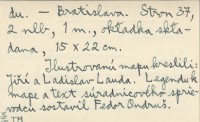 du. — Bratislava. Stran 37,
2 nlb, 1 m., okładka skła-
dana, 15 x 22 cm.
Ilustrovanú mapu kreslili:
Jiří a Ladislav Lauda. Legendu k
mape a text súradnicového sprie-
vodcu sostavil Fedor Ondruš.
TM